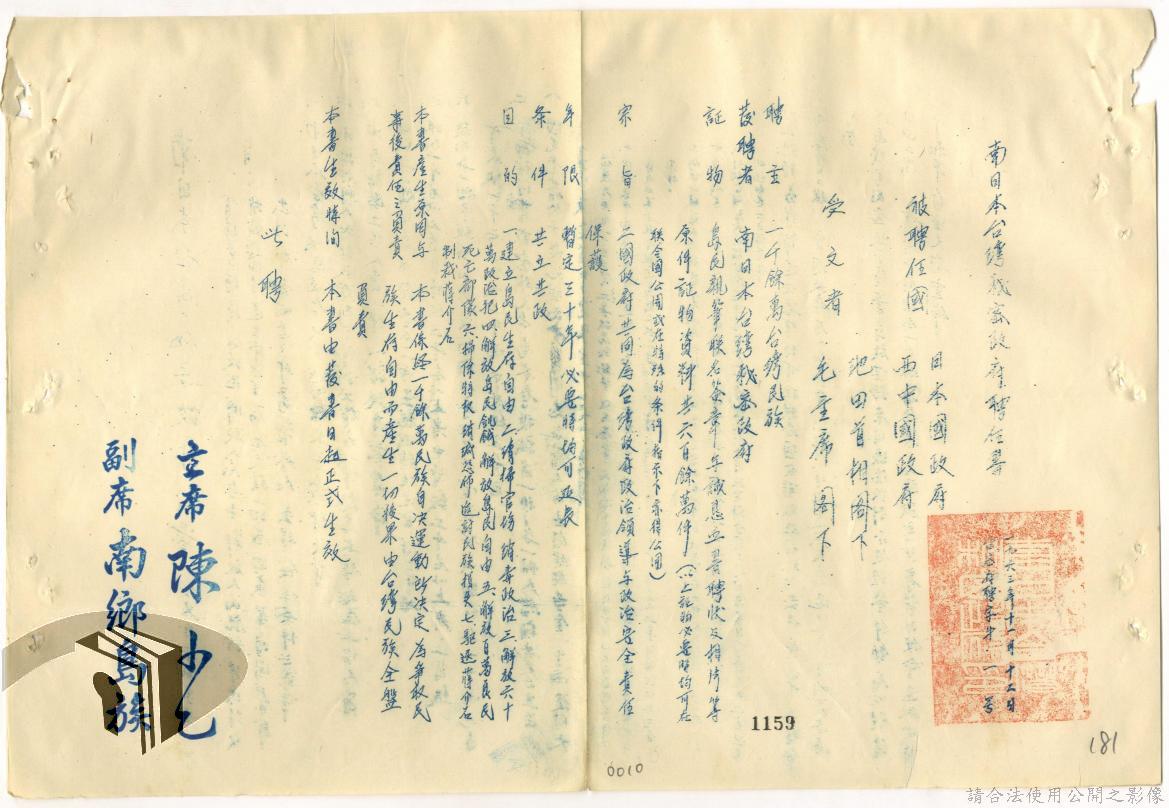 南日本台灣秘密政府聘任書
一九六三年十一月十二日
聘字第一號
被聘任國 日本國政府
西中國政府
池田首相閣下
受文者 毛主席 閣下
聘主 一千餘萬台灣民族
發聘者 南日本台灣秘密政府
証物 島民親筆聯名簽章年誠懇血書聘狀及相片等
原件証物資料共六百餘萬件(以上証物必要時均可在
聯合國公開或在特殊的条件指示下亦得公開)
宗旨 二國政府共同為台灣政府政治領導与政治安全責任
保護
年限 暫定三十年必要時均可延長
条件 共立共政
目的 一建立島民生存自由二清掃官僚消毒政治三解放六十
萬政治犯四解放島民飢餓解放島民自由五解放百萬良民
死亡部隊六掃除特权消滅恐怖追討民族損失七驅逐蔣介石
制裁蔣介石
本書產生原因与
事後責任之負責 本書係经一千餘萬民族自决運動所决定為爭取民
族生存自由而產生一切後果由台灣民族全盤
負責
本書生效時间 本書由發書日起正式生效
此聘
主席 陳少乙
副席 南鄉島族
1159
0010
181
請合法使用公開之影像